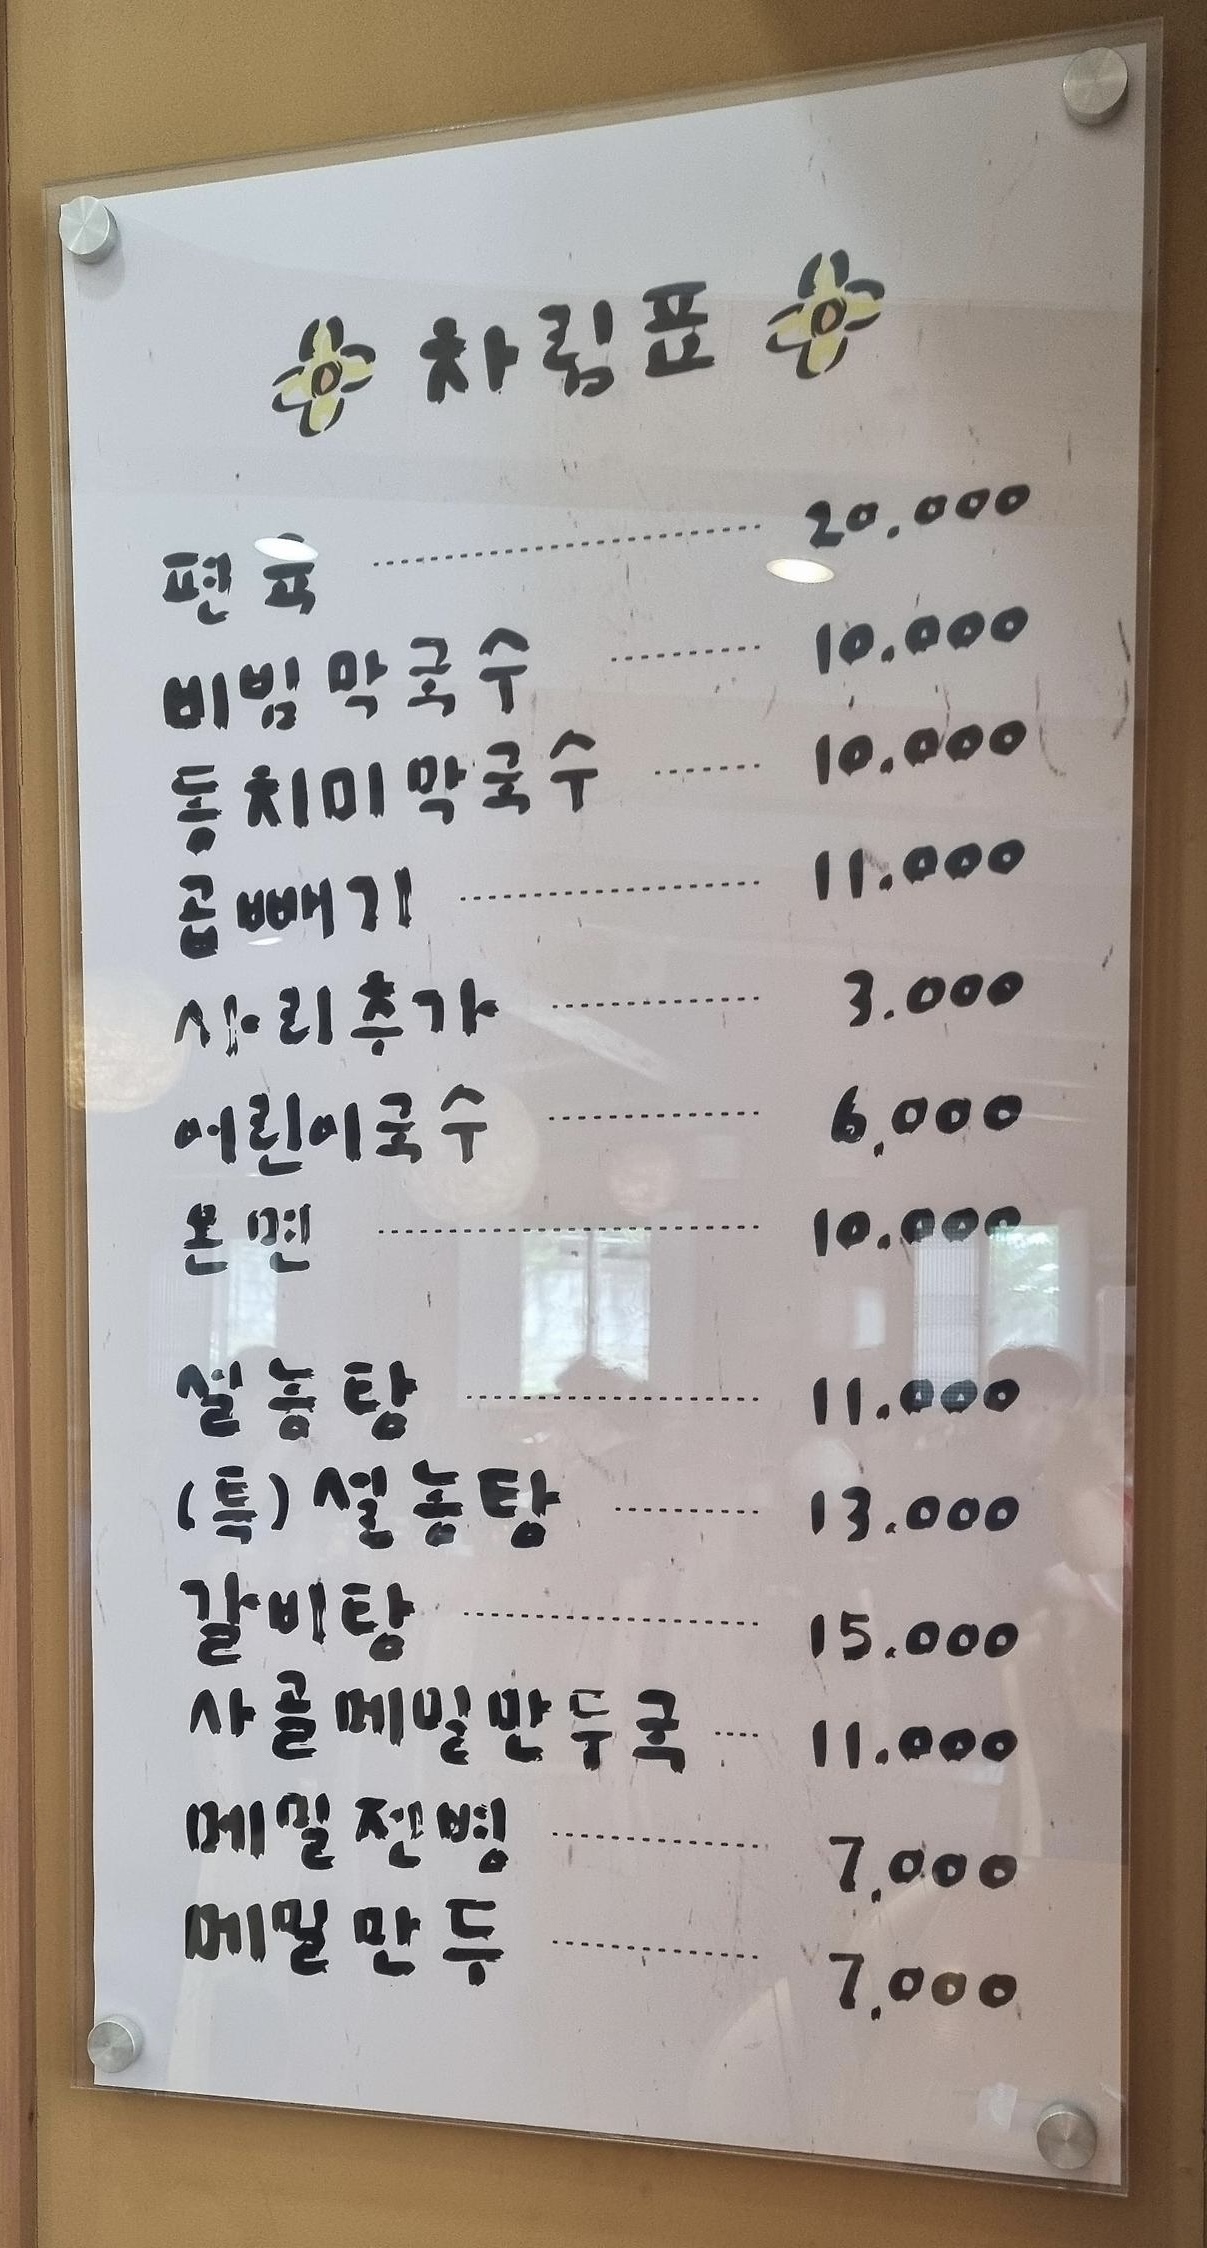 차림표
편육 20.000
비빔막국수 10.000
동치미막국수 10.000
곱빼기 11.000
사리추가 3.000
어린이국수 6,000
온면 10.000
설농탕 11.000
(특)설농탕 13.000
갈비탕 15.000
사골메밀만두국 11.000
메밀전병 7,000
메밀만두 7,000